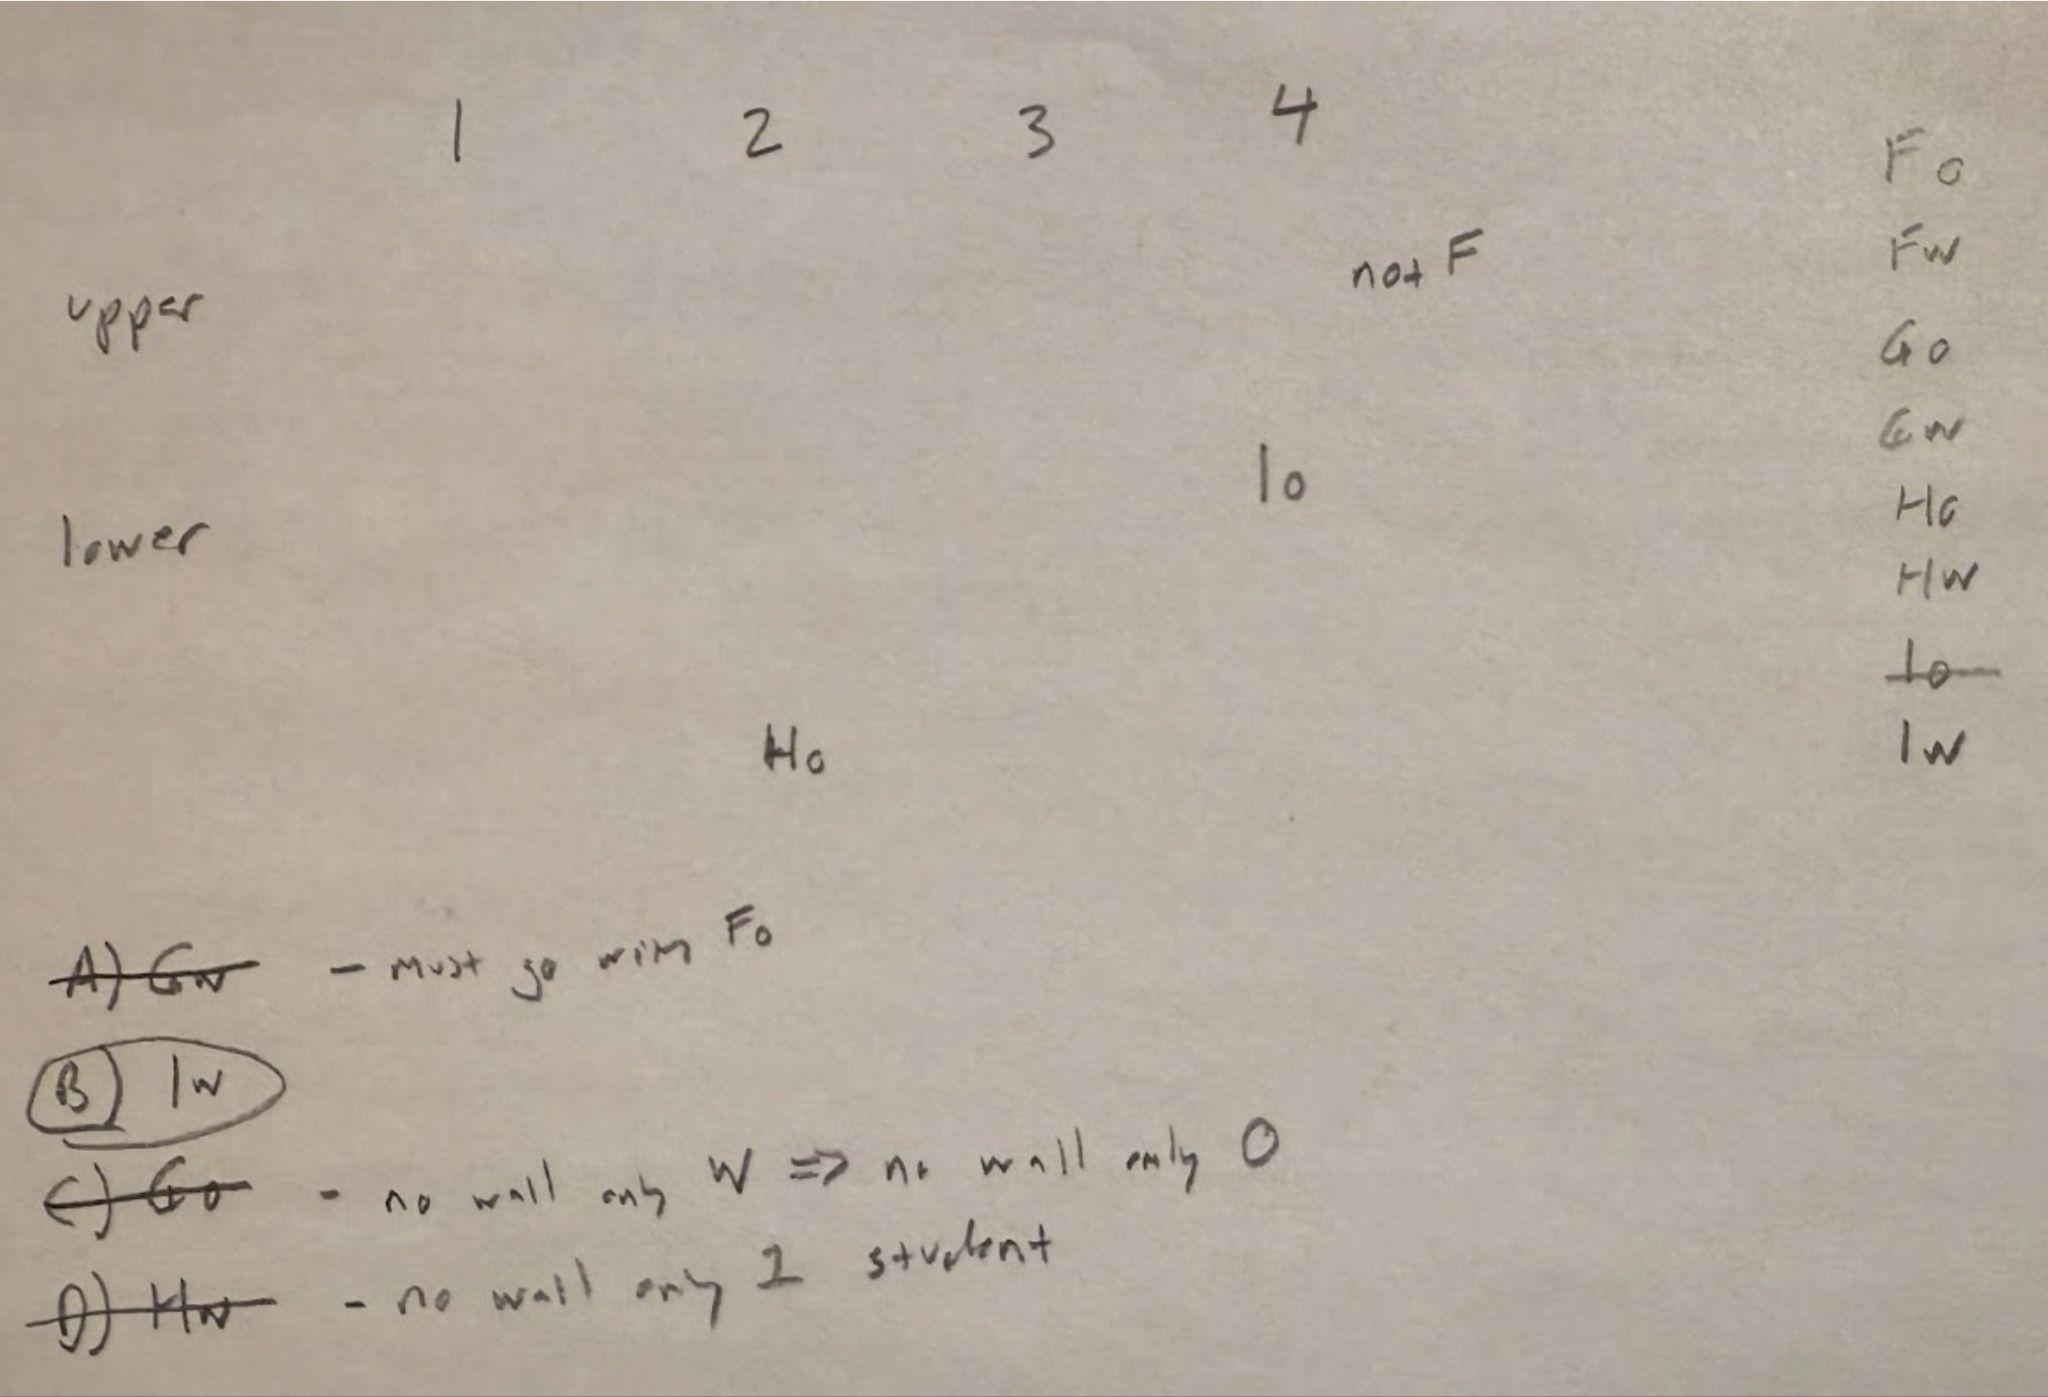 1 2 3 4
Fo
not F
Fw
upper
Go
Gw
Io
Ho
lower
Hw
Io
Ho
Iw
A) Gw - must go with Fo
B) Iw
C) Go - no wall only W => no wall only O
D) Hw - no wall only 1 student